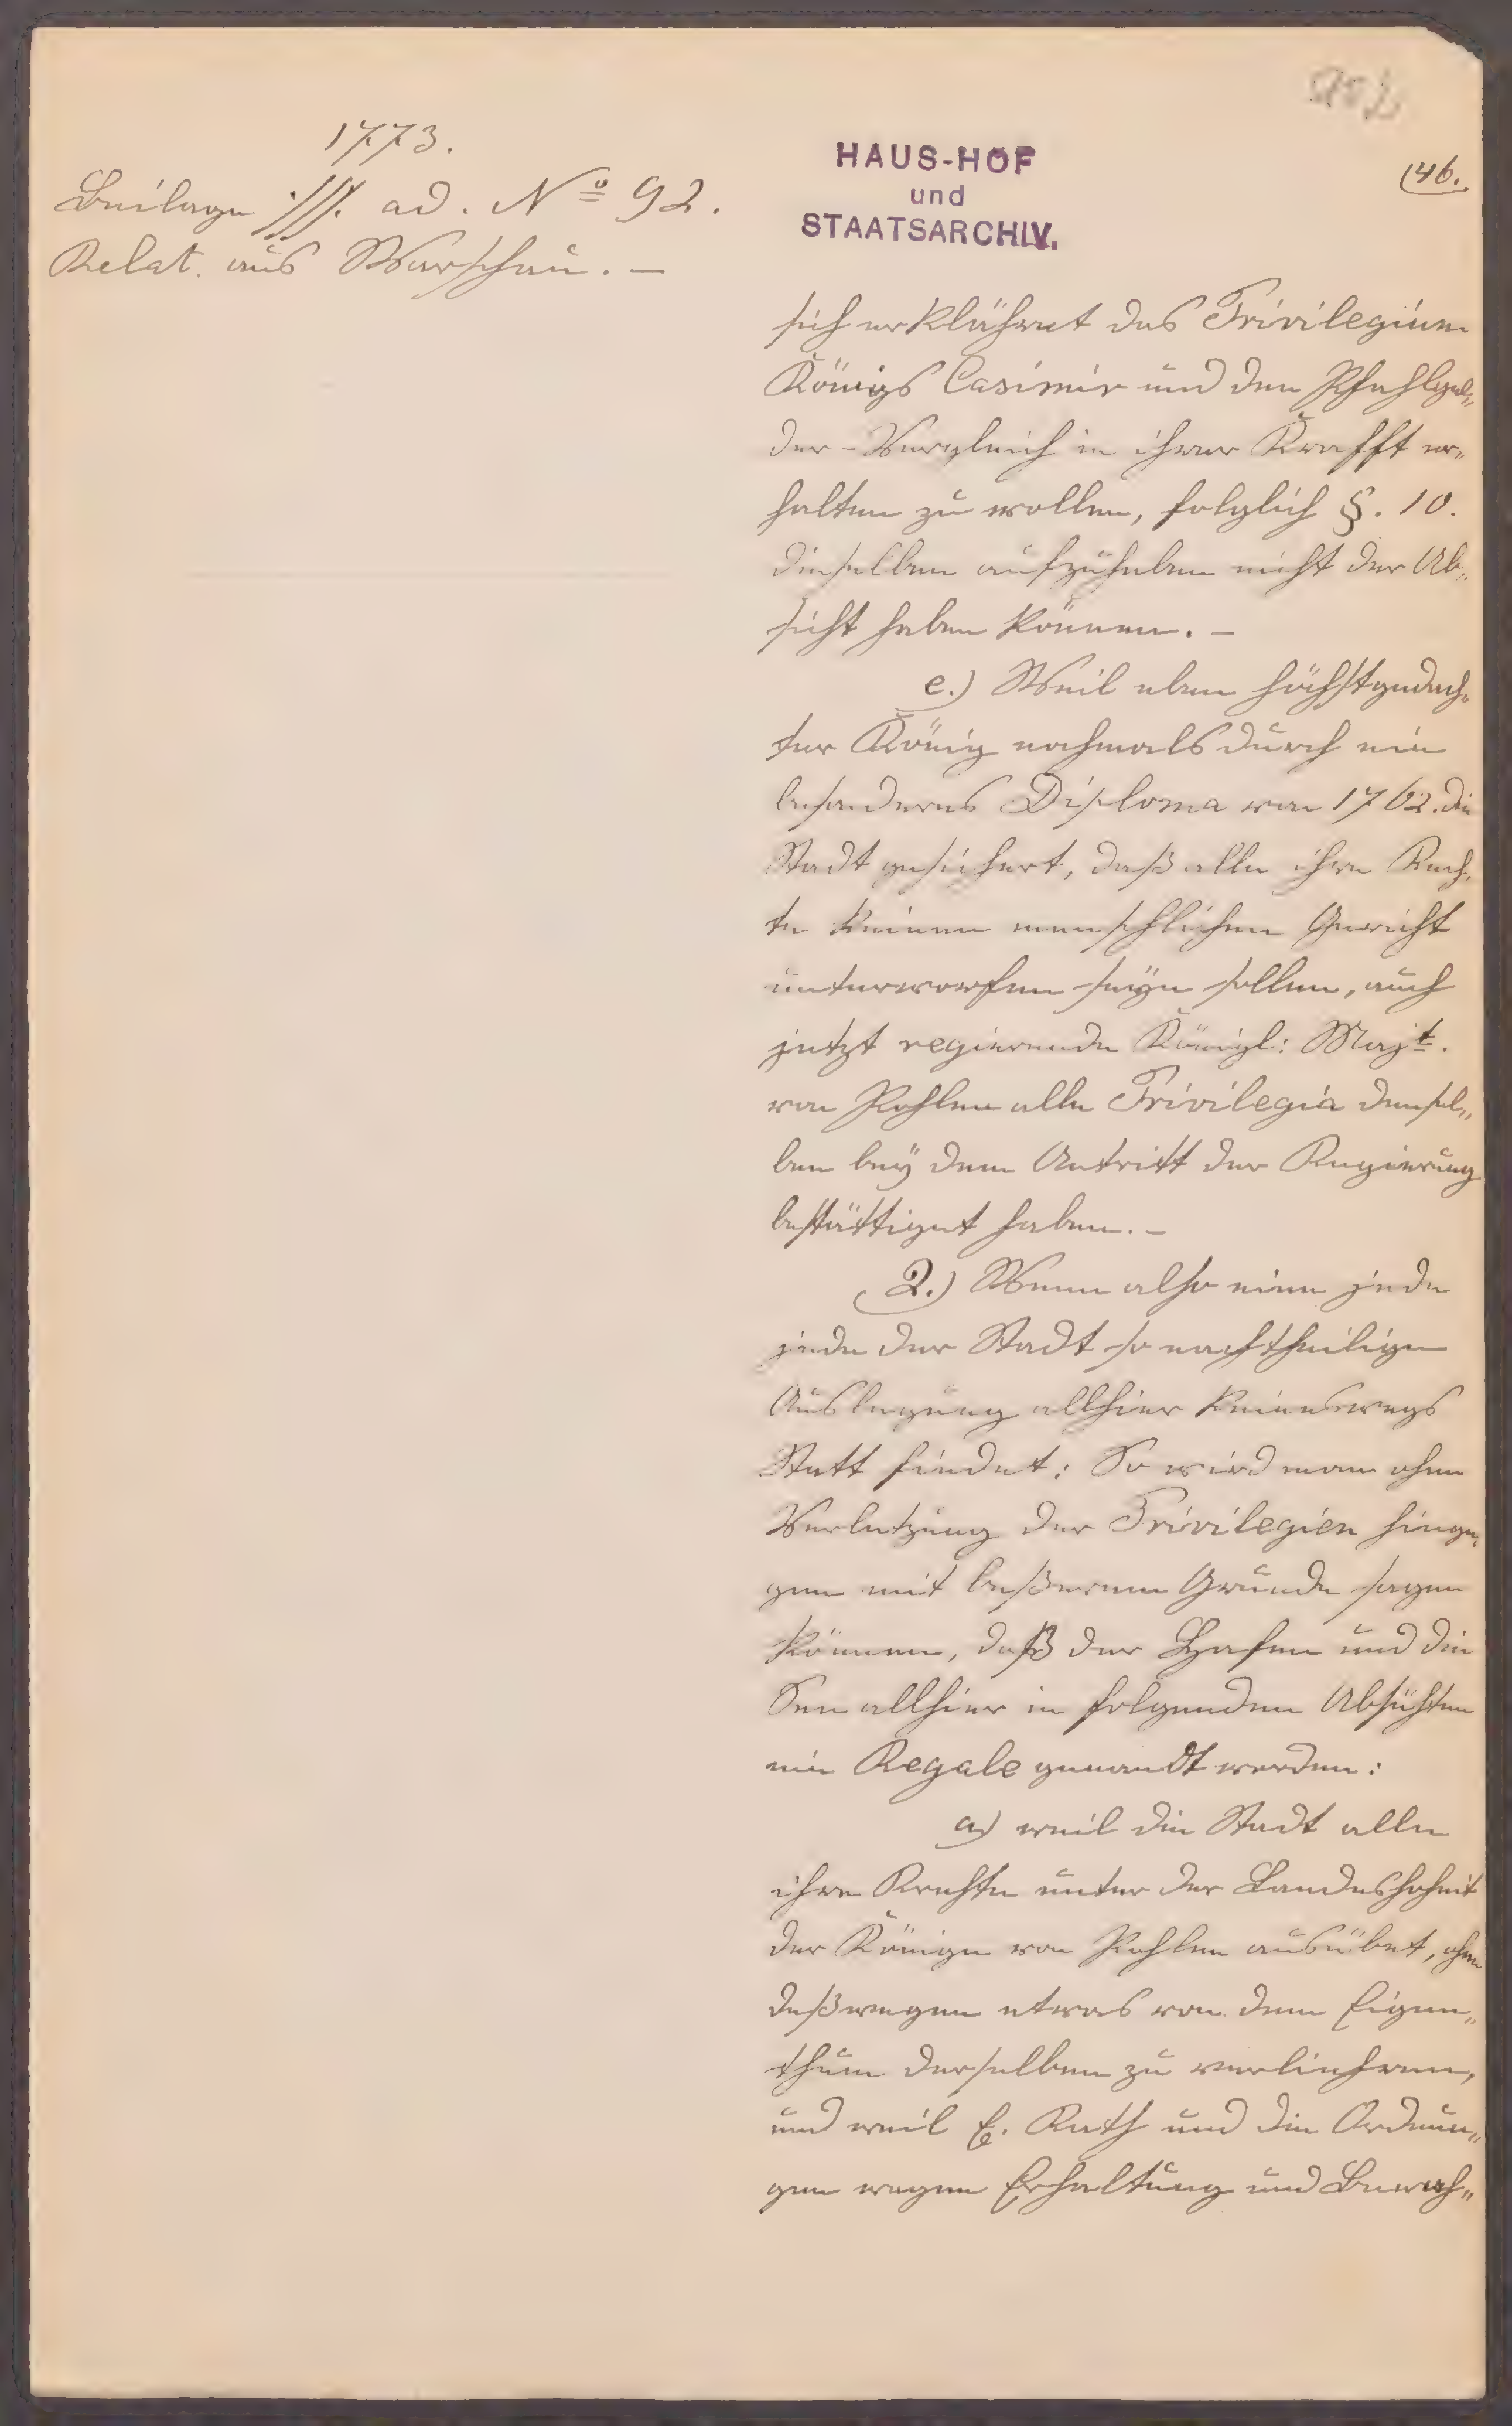 1773.
Beilage ·///. ad. Nº 92.
Relat. aus Warschau. —
HAUS-HOF
und
STAATSARCHIV.
146.
sich erklähret das Privilegium
Königs Casimir und den Pfahlgel„
der-Vergleich in ihrer Krafft er„
halten zu wollen, folglich §. 10.
dieselben aufzuheben nicht der Ab„
sicht haben können. —
e.) Weil eben höchstgedach„
ter König nochmals durch ein
besonderes Diploma von 1762. die
Stadt gesichert, daß alle ihre Rech„
te keinem menschlichen Gericht
unterworfen seÿn sollen, auch
jetzt regierende Königl: Majt.
von Pohlen alle Privilegia densel„
ben beÿ dem Antritt der Regierung
bestättiget haben. —
2.) Wenn also eine jede
jede der Stadt so nachtheilige
Auslegung allhier keineswegs
Statt findet: So wird man ohne
Verletzung der Privilegien hinge„
gen mit beßerem Grunde sagen
können, daß der Hafen und die
See allhier in folgenden Absichten
ein Regale genandt werden:
a) weil die Stadt alle
ihre Rechte unter der Landeshoheit
der Könige von Pohlen ausübet, ohne
deßwegen etwas von dem Eigen„
thum derselben zu verliehren,
und weil E. Rath und die Ordnun„
gen wegen Erhaltung und Bewah„